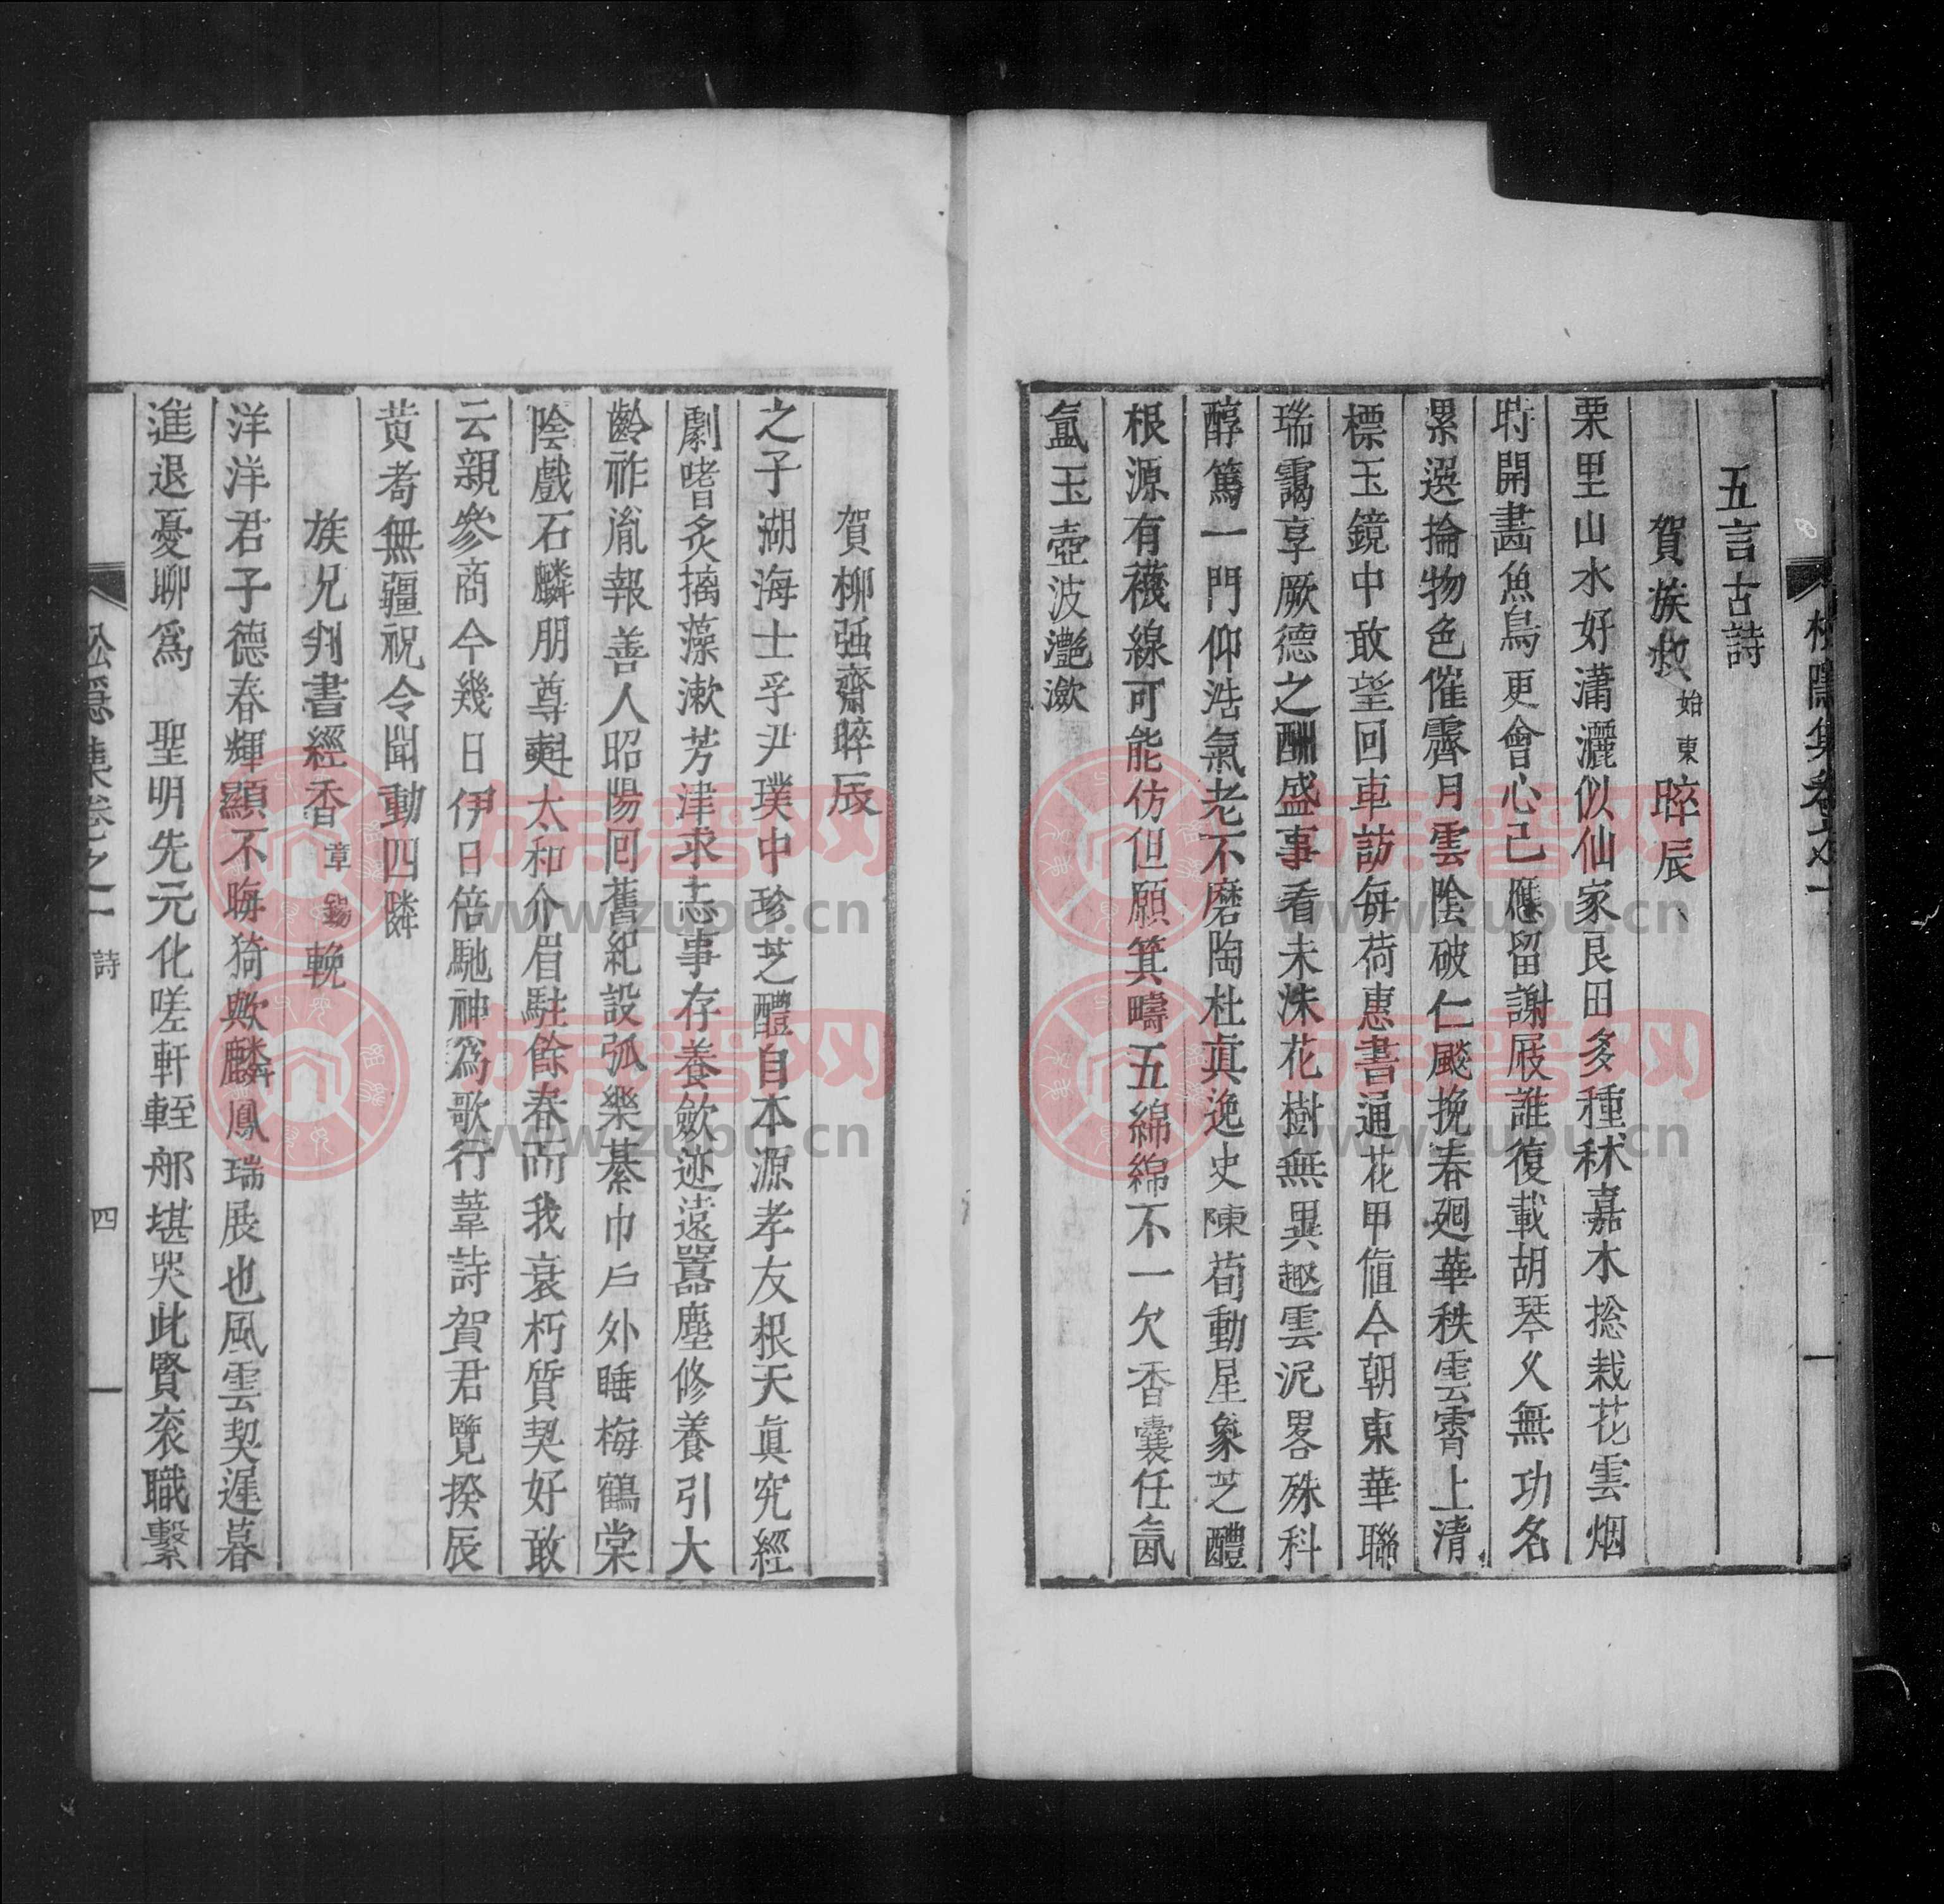 五言古詩
賀族叔始東晬辰
栗里山水好瀟灑似仙家良田多種秫嘉木捴栽花雲烟
時開畵魚鳥更會心已應留謝屐誰復載胡琴乂無功名
累選掄物色催霽月雲陰破仁颸挽春廻華秩雲霄上清
標玉鏡中敢望回車訪每荷惠書通花甲値今朝東華聯
瑞靄享厥德之酬盛事看未沬花樹無異趣雲泥畧殊科
醇篤一門仰浩氣老不磨陶杜眞逸史陳荀動星象芝醴
根源有襪線可能仿但願箕疇五綿綿不一欠香囊任氤
氳玉壺波灔瀲
賀柳强齋晬辰
之子湖海士孚尹璞中珍芝醴自本源孝友根天眞究經
劇嗜炙摛藻漱芳津求志事存養歛迹遠囂塵修養引大
齡祚胤報善人昭陽回舊紀設弧樂綦巾戶外睡梅鶴棠
陰戲石麟朋尊㪺太和介眉駐餘春而我衰朽質契好敢
云親參商今幾日伊日倍馳神爲歌行葦詩賀君覽揆辰
黄耉無疆祝令聞動四隣
族兄判書經香章錫輓
洋洋君子德春輝顯不晦猗歟麟鳳瑞展也風雲契遲暮
進退憂聊爲 聖明先元化嗟軒輊那堪哭此賢衮職繫
松隱集卷之一 詩 四 一
www.zupu.cn
族譜网
www.zupu.cn
族譜网
www.zupu.cn
族譜网
www.zupu.cn
族譜网